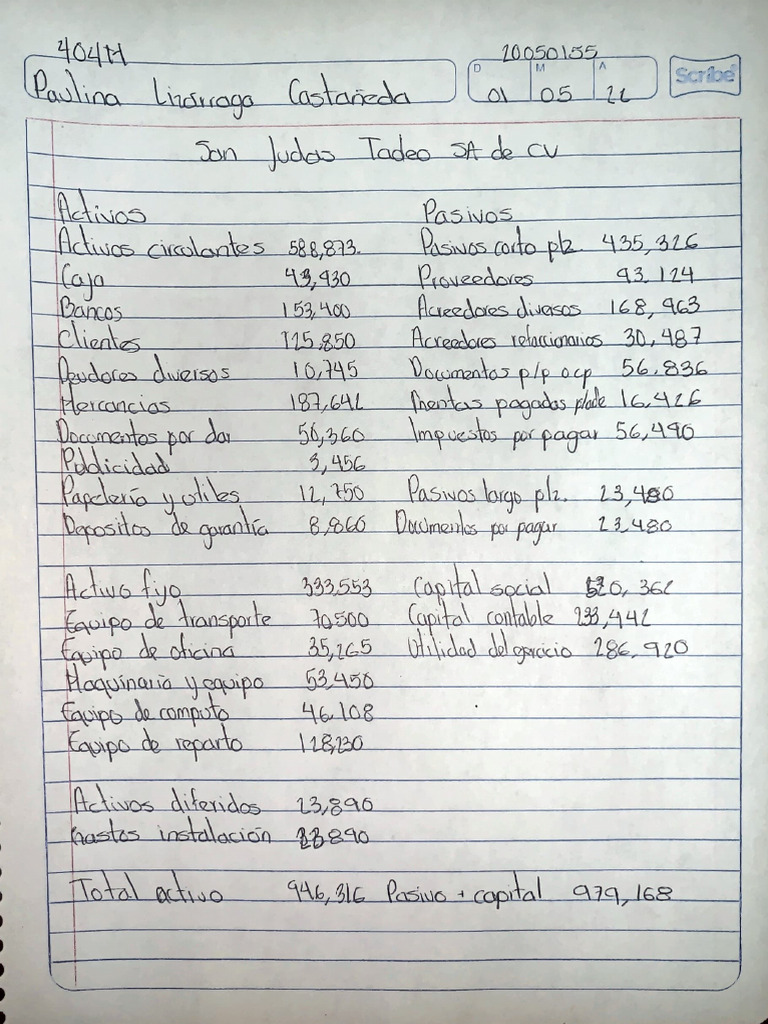 404M 20050155
Paulina Lizárraga Castañeda D 01 M 05 A 22 Scribe
San Judas Tadeo SA de CV
Activos Pasivos
Activos circulantes 588,873. Pasivos corto plz. 435,326
Caja 43,930 Proveedores 93,124
Bancos 153,400 Acreedores diversos 168,963
Clientes 125,850 Acreedores refaccionarios 30,487
Deudores diversos 10,745 Documentos p/p a cp 56,836
Mercancias 187,642 Rentas pagadas p/ade 16,426
Documentos por dar 50,360 Impuestos por pagar 56,490
Publicidad 3,456
Papelería y utiles 12,750 Pasivos largo plz. 23,480
Depositos de garantía 8,860 Documentos por pagar 23,480
Activo fijo 333,553 Capital social 520,362
Equipo de transporte 70,500 Capital contable 233,442
Equipo de oficina 35,265 Utilidad del ejercicio 286,920
Maquinaria y equipo 53,450
Equipo de computo 46,108
Equipo de reparto 128,230
Activos diferidos 23,890
Gastos instalación 23890
Total activo 946,316 Pasivo + capital 979,168